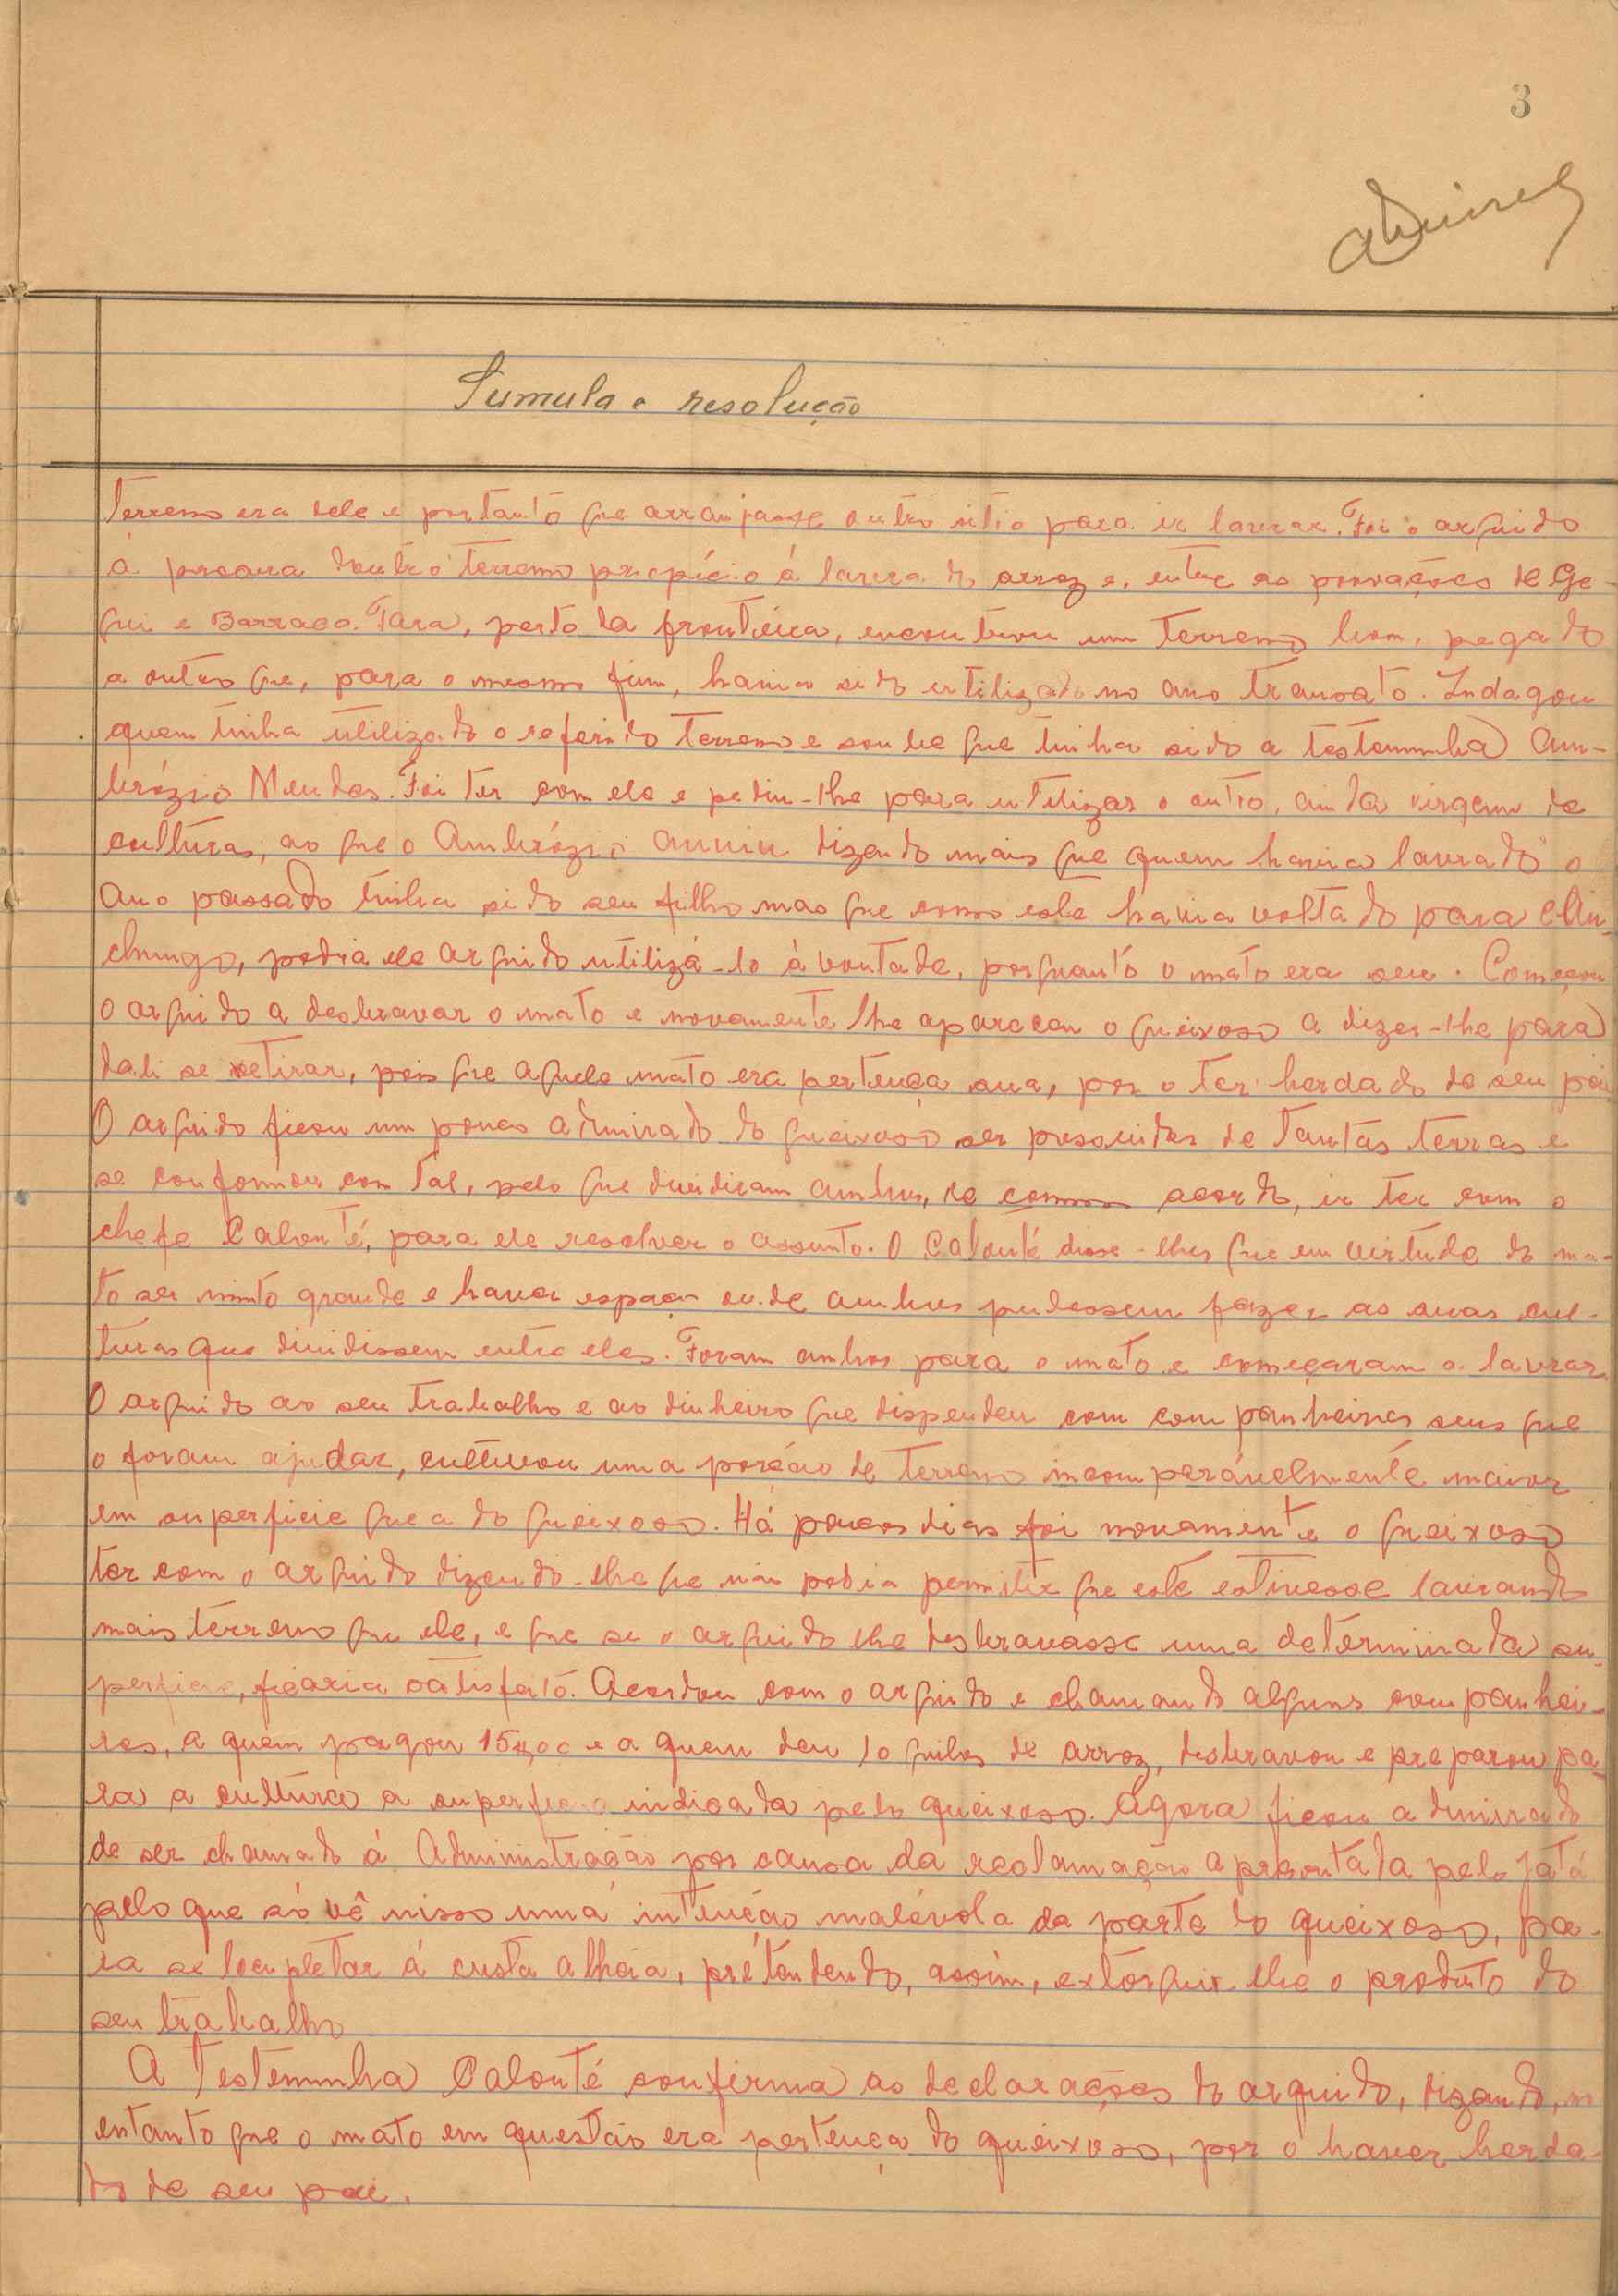 3
Sumula e resolução
terreno era dele e portanto que arranjasse outro sitio para ir lavrar. Foi o arguido
á procura doutro terreno propício á lavra do arroz e, entre as povoações de Ge-
gui e Barraca Tara, perto da fronteira, encontrou um terreno bom, pegado
a outro que, para o mesmo fim, havia sido utilizado no ano transato. Indagou
quem tinha utilizado o referido terreno e soube que tinha sido a testemunha Am-
brózio Mendes. Foi ter com ele e pediu-lhe para utilizar o outro, ainda virgem de
culturas, ao que o Ambrózio anuiu dizendo mais que quem havia lavrado o
ano passado tinha sido seu filho mas que como este havia voltado para
chungo, podia ele arguido utilizá-lo à vontade, porquanto o mato era seu. Começou
o arguido a desbravar o mato e novamente lhe apareceu o queixoso a dizer-lhe para
dali se retirar, pois que aquele mato era pertença sua, por o ter herdado de seu pai
O arguido ficou um pouco admirado do queixoso ser possuidor de tantas terras e
se conformou com tal, pelo que decidiram ambos, de comum acordo, ir ter com o
chefe Calonté, para ele resolver o assunto. O Calonté disse-lhes que em virtude do ma-
to ser muito grande e haver espaço onde ambos pudessem fazer as suas cul-
turas que dividissem entre eles. Foram ambos para o mato e começaram a lavrar.
O arguido ao seu trabalho e ao dinheiro que dispendeu com companheiros seus que
o foram ajudar, cultivou uma porção de terreno incomparávelmente maior
em superficie que a do queixoso. Há poucos dias foi novamente o queixoso
ter com o arguido dizendo-lhe que não podia permitir que este estivesse lavrando
mais terreno que ele, e que se o arguido lhe desbravasse uma determinada su-
perficie, ficaria satisfeito. Acordou com o arguido e chamando alguns companhei-
ros, a quem pagou 15$00 e a quem deu 10 quilos de arroz, desbravou e preparou pa-
ra a cultura a superficie indicada pelo queixoso. Agora ficou admirado
de ser chamado á Administração por causa da reclamação apresentada pelo Jatá
pelo que só vê nisso uma intenção malévola da parte do queixoso, pa-
ra se locupletar á custa alheia, pretendendo, assim, extorquir-lhe o produto do
seu trabalho
A testemunha Calonté confirma as declarações do arguido, dizendo, no
entanto que o mato em questão era pertença do queixoso, por o haver herda-
do de seu pai.